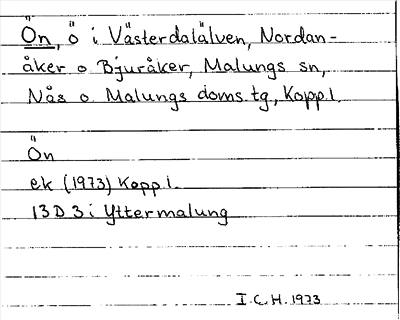 Ön, ö i Västerdalälven, Nordan-
åker o Bjuråker, Malungs sn,
Nås o Malungs doms.tg., Kopp.l.
Ön
ek (1973) Kopp.l.
13D 3i Yttermalung
I.C.H. 1973